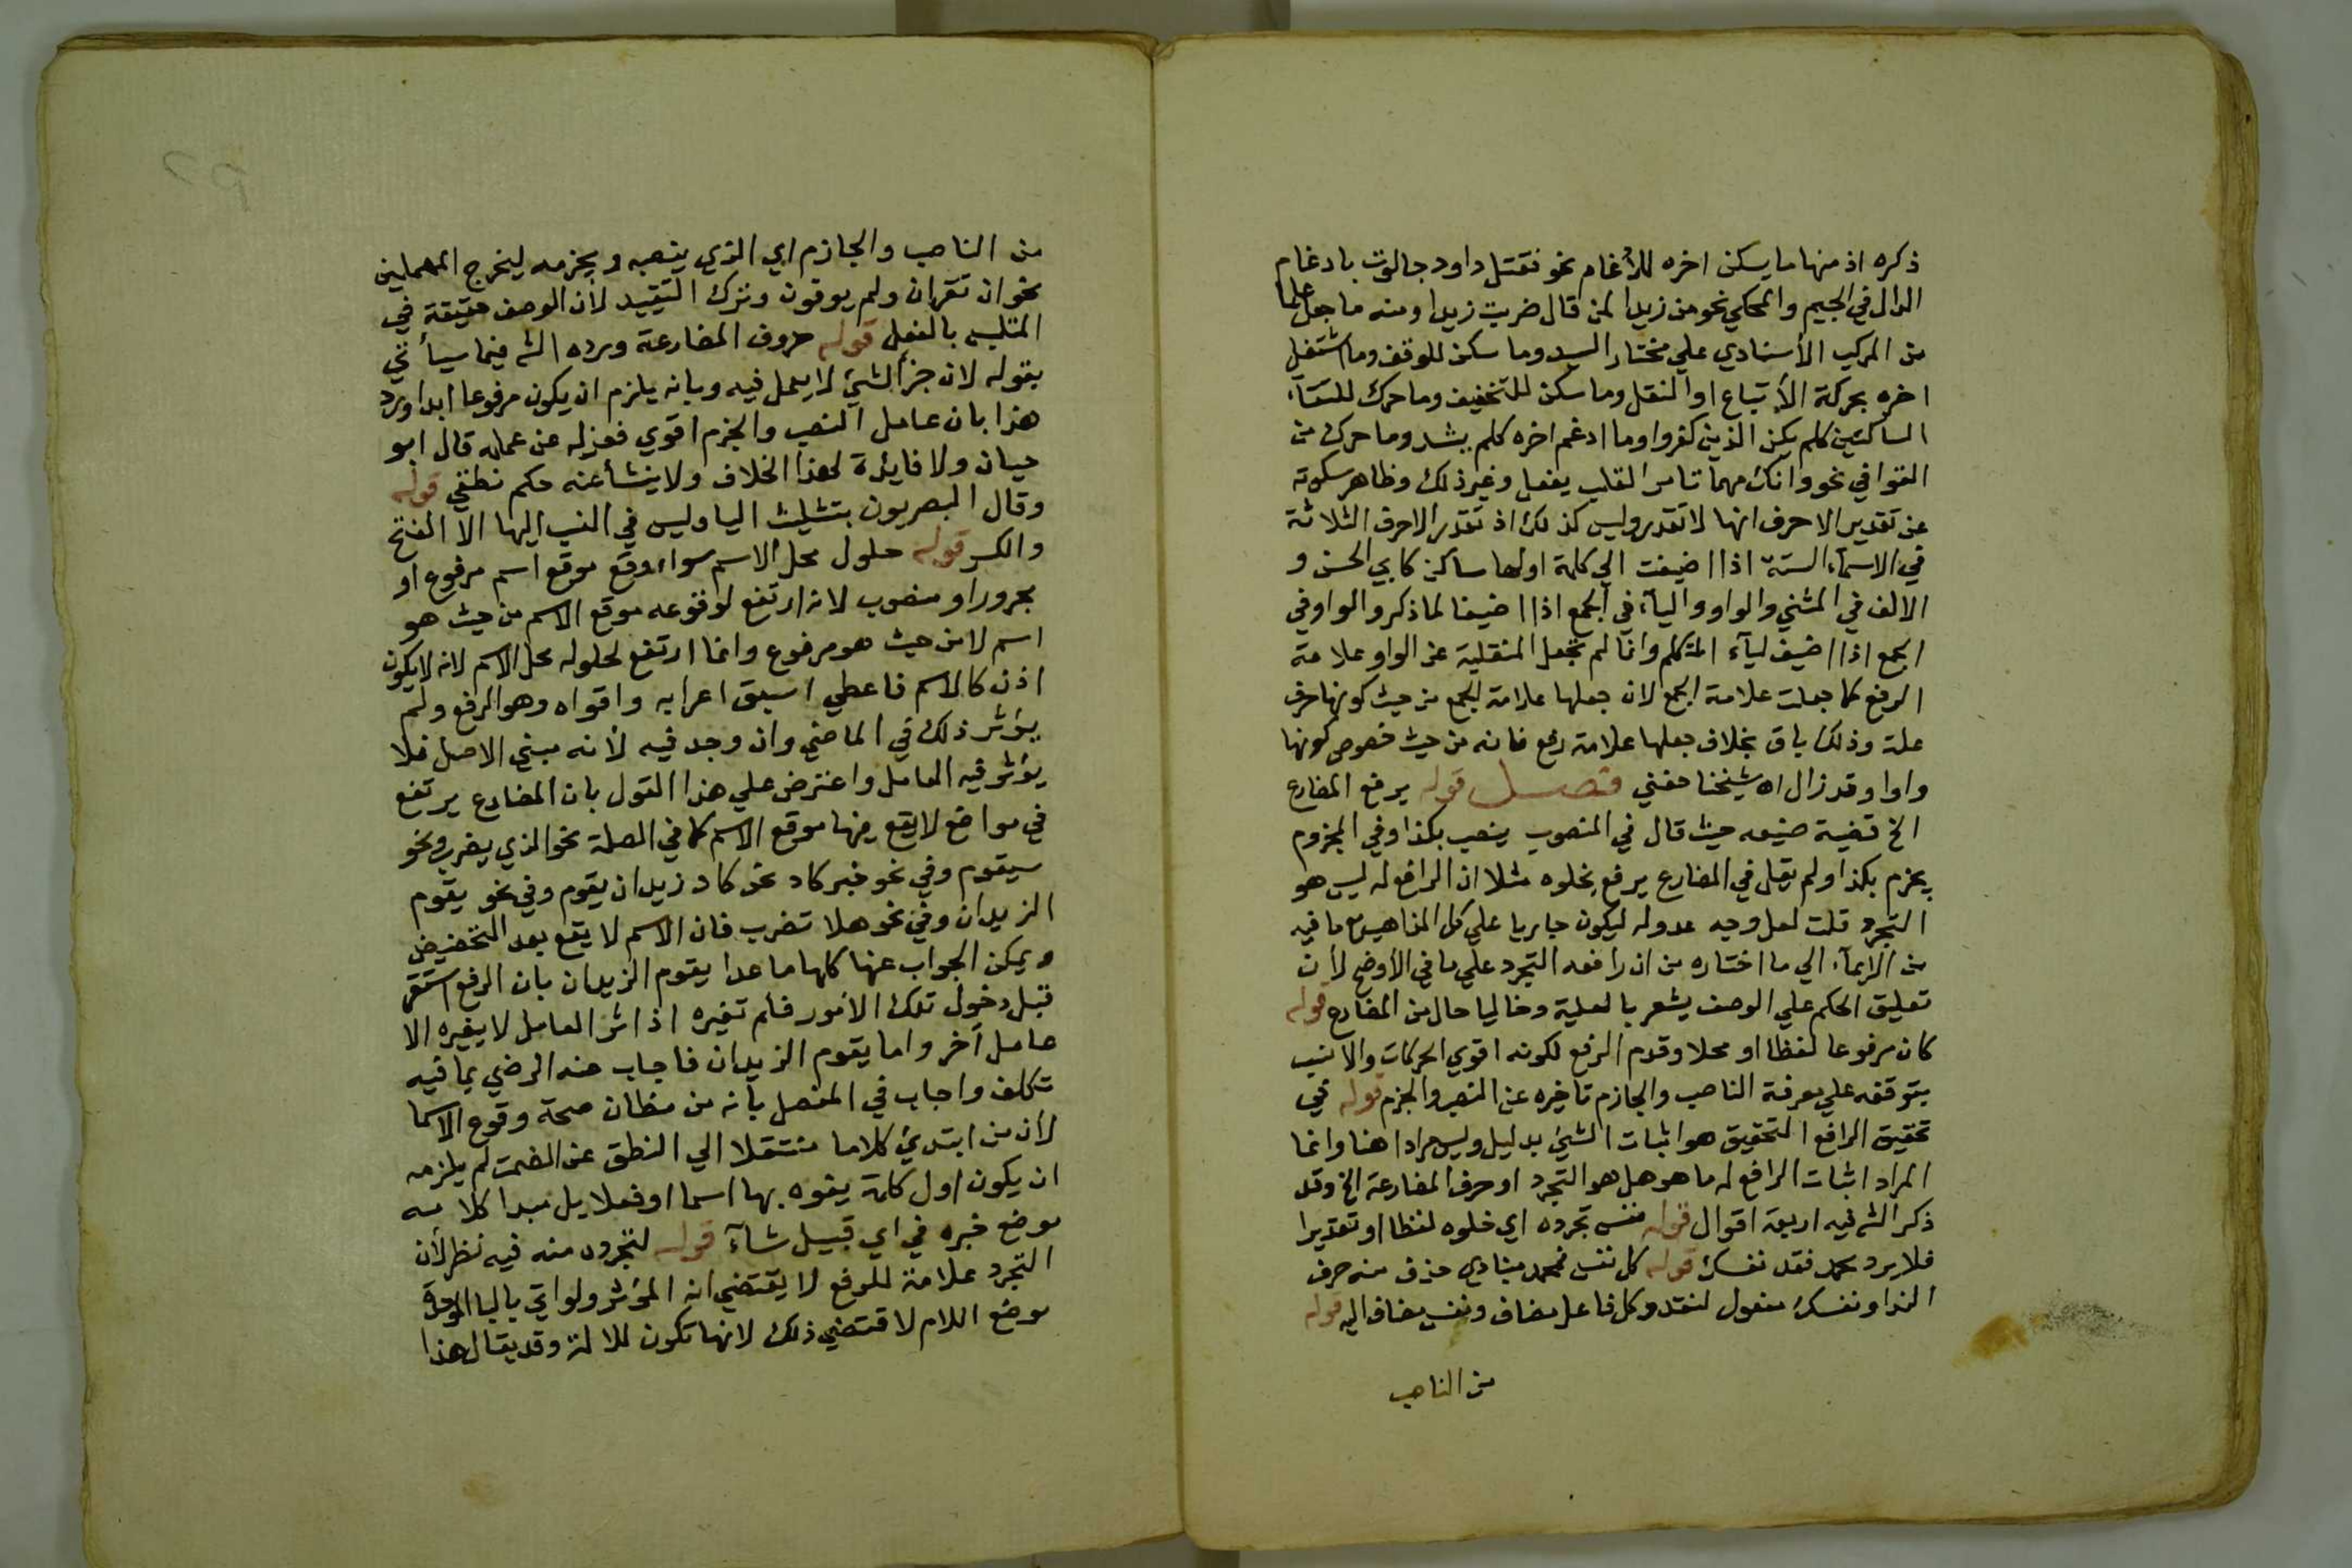 ذكره اذ منها ما يسكن اخره للادغام نحو نقتل داود جالوت بادغام
الدال في الجيم والمحكي نحو من زيدا لمن قال ضربت زيدا ومنه ما جعل علما
من المركب الأسنادي علي مختار السيد وما سكن للوقف وما اشتغل
اخره بحركة الأتباع او النقل وما سكن للتخفيف وما حرك للتقآء
الساكنين كلم يكن الذين كفروا وما ادغم اخره كلم يشد وما حرك من
القوافي نحو وانك مهما تامر القلب يفعل وغير ذلك وظاهر سكوته
عن تقدير الاحرف انها لا تقدر وليس كذلك اذ تقدر الاحرف الثلاثة
في الاسمآء الستة اذا اضيفت الي كلمة اولها ساكن كابي الحسن و
الالف في المثني والواو واليآء في الجمع اذا اضيفا لما ذكر والواو في
الجمع اذا اضيف ليآء المتكلم وانما لم تجعل المنقلبة عن الواو علامة
الرفع كما جعلت علامة الجمع لان جعلها علامة الجمع من حيث كونها حرف
علة وذلك باق بخلاف جعلها علامة رفع فانه من حيث خصوص كونها
واوا وقد زال اه شيخنا حفني فصل قوله يرفع المضارع
الخ قضية صنيعه حيث قال في المنصوب ينصب بكذا وفي المجزوم
يجزم بكذا ولم يقل في المضارع يرفع بخلوه مثلا ان الرافع له ليس هو
التجرد قلت لعل وجه عدوله ليكون جاريا علي كل المذاهب مع ما فيه
من الايمآء الي ما اختاره من ان رافعه التجرد علي ما في الأوضح لأن
تعليق الحكم علي الوصف يشعر بالعلية وخاليا حال من المضارع قوله
كان مرفوعا لفظا او محلا وقدم الرفع لكونه اقوي الحركات والانسب
بتوقفه علي معرفة الناصب والجازم تاخيره عن النصب والجزم قوله في
تحقيق الرافع التحقيق هو اثبات الشئ بدليل وليس مرادا هنا وانما
المراد اثبات الرافع له ما هو هل هو التجرد او حرف المضارعة الخ وقد
ذكر الشم فيه اربعة اقوال قوله نفس تجرده اي خلوه لفظا او تقديرا
فلا يرد محمد تفد نفسك قوله كل نفس فمحمد منادي حذف منه حرف
الندا ونفسك مفعول لتفد وكل فاعل مضاف ونفس مضاف اليه قوله
من الناصب
من الناصب والجازم اي الذي ينصبه ويجزمه ليخرج المهملين
نحو ان تقرأن ولم يوفون وترك التقييد لأن الوصف حقيقة في
المتلبس بالفعل قوله حروف المضارعة ورده الشم فيما سيأتي
بقوله لان جزأ الشئ لا يعمل فيه وبانه يلزم ان يكون مرفوعا ابدا ويرد
هذا بان عامل النصب والجزم اقوي فعزله عن عمله قال ابو
حيان ولا فايدة لهذا الخلاف ولا ينشأ عنه حكم نطقي قوله
وقال البصريون بتثليث البا وليس في النسب اليها الا الفتح
والكسر قوله حلول محل الاسم سواء وقع موقع اسم مرفوع او
مجرور او منصوب لانه ارتفع لوقوعه موقع الاسم من حيث هو
اسم لا من حيث هو مرفوع وانما ارتفع لحلوله محل الاسم لانه لا يكون
اذن كالاسم فاعطي اسبق اعرابه واقواه وهو الرفع ولم
يؤثر ذلك في الماضي وان وجد فيه لأنه مبني الاصل فلا
يؤثر فيه العامل واعترض علي هذا القول بان المضارع يرتفع
في مواضع لا يقع فيها موقع الاسم كما في الصلة نحو الذي يضرب ونحو
سيقوم وفي نحو خبر كاد نحو كاد زيد ان يقوم وفي نحو يقوم
الزيدان وفي نحو هلا تضرب فان الاسم لا يقع بعد التحضيض
ويمكن الجواب عنها كلها ما عدا يقوم الزيدان بان الرفع استقر
قبل دخول تلك الامور فلم تغيره اذ اثر العامل لا يغيره الا
عامل آخر واما يقوم الزيدان فاجاب عنه الرضي بما فيه
تكلف واجاب في المفصل بأنه من مظان صحة وقوع الاسما
لأن من ابتدئ كلاما منتقلا الي النطق عن الصمت لم يلزمه
ان يكون اول كلمة يفوه بها اسما او فعلا بل مبدا كلامه
موضع خبره في اي قبيل شآء قوله لتجرده منه فيه نظر لأن
التجرد علامة للرفع لا يقتضي انه المؤثر ولو اتي بالبا الموحدة
موضع اللام لاقتضي ذلك لانها تكون للالة وقد يقال هذا